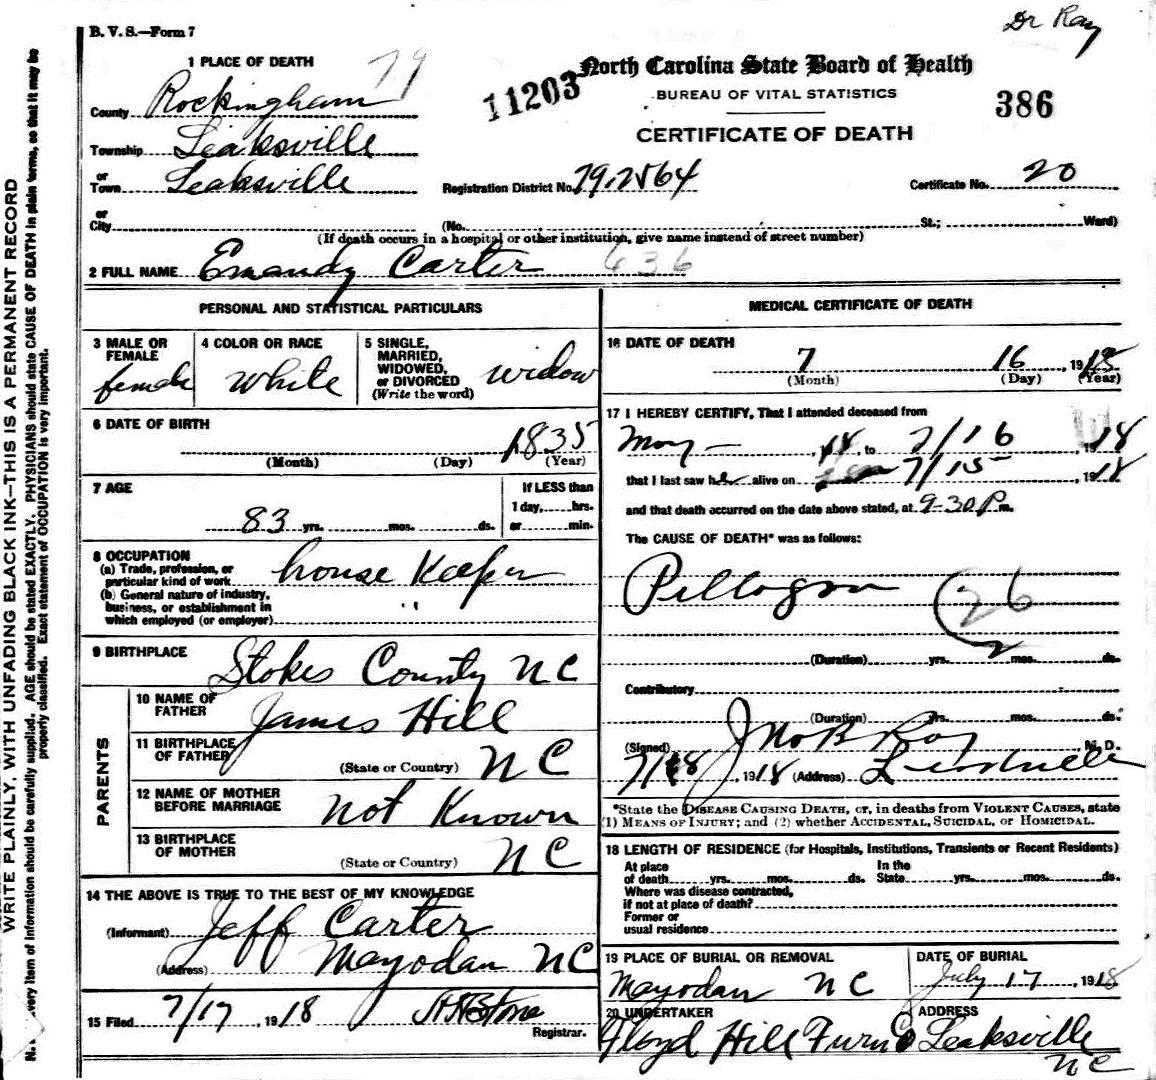 Dr Ray
B. V. S.—Form 7
1 PLACE OF DEATH
79
11203
North Carolina State Board of Health
BUREAU OF VITAL STATISTICS
386
CERTIFICATE OF DEATH
County Rockingham
Township Leaksville
or Town Leaksville
Registration District No. 79.2564
Certificate No. 20
or City (No. St.; Ward)
(If death occurs in a hospital or other institution, give name instead of street number)
2 FULL NAME Emandy Carter 636
PERSONAL AND STATISTICAL PARTICULARS
3 MALE OR FEMALE female
4 COLOR OR RACE white
5 SINGLE, MARRIED, WIDOWED, or DIVORCED (Write the word) widow
6 DATE OF BIRTH
1835
(Month) (Day) (Year)
7 AGE
83 yrs. mos. ds.
If LESS than 1 day, hrs. or min.
8 OCCUPATION
(a) Trade, profession, or particular kind of work house Keeper
(b) General nature of industry, business, or establishment in which employed (or employer) "
9 BIRTHPLACE Stokes County NC
PARENTS
10 NAME OF FATHER James Hill
11 BIRTHPLACE OF FATHER (State or Country) NC
12 NAME OF MOTHER BEFORE MARRIAGE not Known
13 BIRTHPLACE OF MOTHER (State or Country) NC
14 THE ABOVE IS TRUE TO THE BEST OF MY KNOWLEDGE
(Informant) Jeff Carter
(Address) Mayodan NC
15 Filed 7/17, 1918
Registrar.
MEDICAL CERTIFICATE OF DEATH
16 DATE OF DEATH
7 16, 1918
(Month) (Day) (Year)
17 I HEREBY CERTIFY, That I attended deceased from
May —, 18, to 7/16, 18
that I last saw her alive on 7/15, 1918
and that death occurred on the date above stated, at 9-30 P m.
The CAUSE OF DEATH* was as follows:
Pellogra 26
(Duration) yrs. 2 mos. ds.
Contributory
(Duration) yrs. mos. ds.
(Signed) Jno B Ray, M. D.
7/18, 1918 (Address)
*State the DISEASE CAUSING DEATH, or, in deaths from VIOLENT CAUSES, state
(1) MEANS OF INJURY; and (2) whether ACCIDENTAL, SUICIDAL, or HOMICIDAL.
18 LENGTH OF RESIDENCE (for Hospitals, Institutions, Transients or Recent Residents)
At place of death yrs. mos. ds. In the State yrs. mos. ds.
Where was disease contracted, if not at place of death?
Former or usual residence
19 PLACE OF BURIAL OR REMOVAL Mayodan NC
DATE OF BURIAL July 17, 1918
20 UNDERTAKER Floyd Hill Furn Co
ADDRESS Leaksville NC
WRITE PLAINLY, WITH UNFADING BLACK INK—THIS IS A PERMANENT RECORD
very item of information should be carefully supplied. AGE should be stated EXACTLY. PHYSICIANS should state CAUSE OF DEATH in plain terms, so that it may be
properly classified. Exact statement of OCCUPATION is very important.